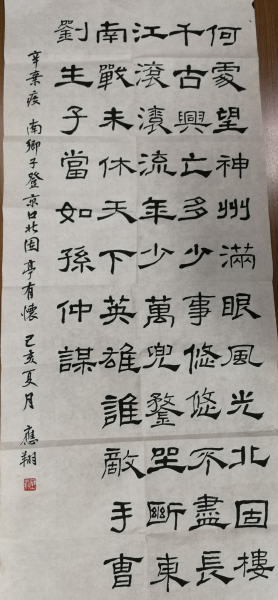 何處望神州滿眼風光北固樓
千古興亡多少事悠悠不盡長
江滾滾流年少萬兜鍪坐斷東
南戰未休天下英雄誰敵手曹
劉生子當如孫仲謀
辛棄疾 南鄉子登京口北固亭有懷 己亥夏月 應翔